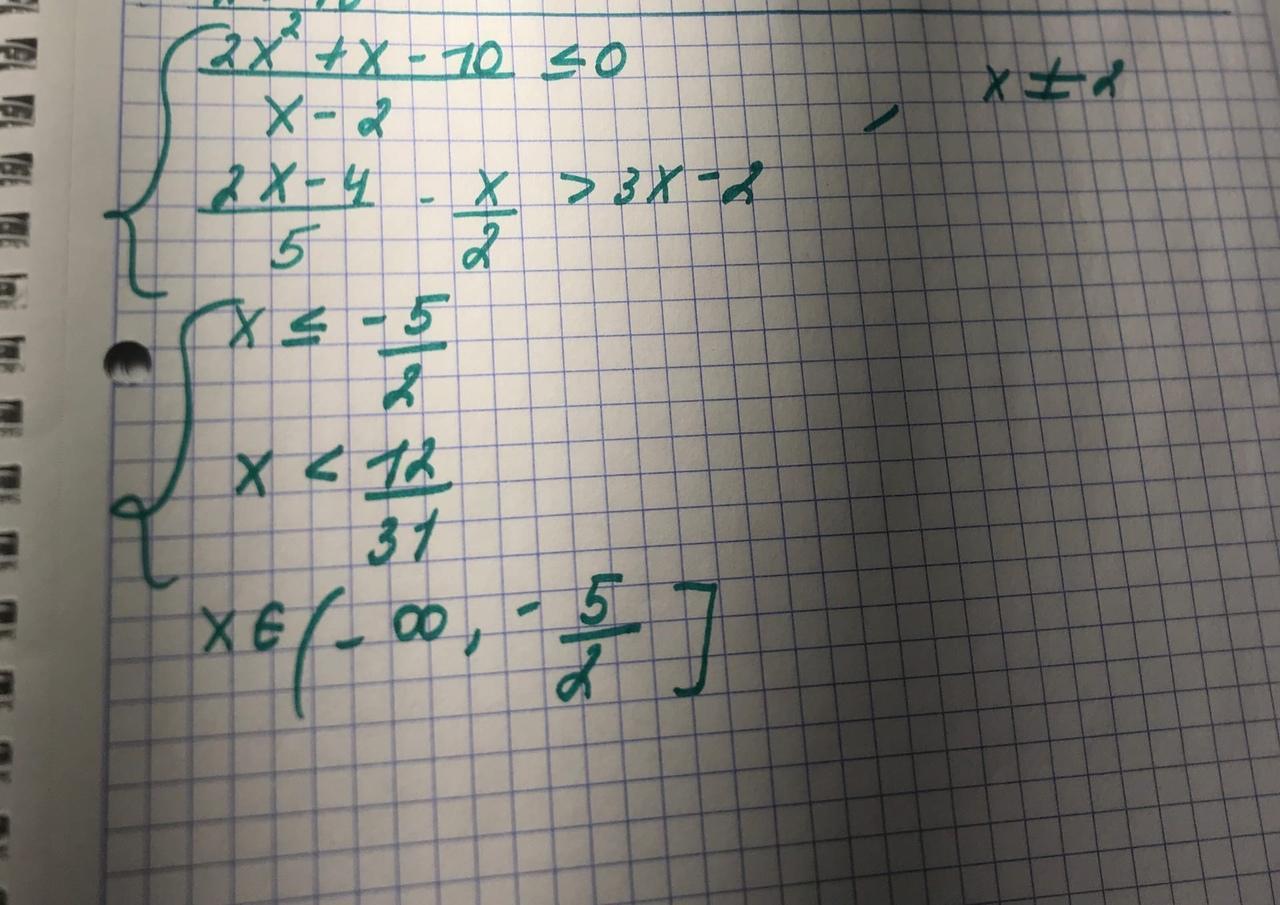 2x² + x - 10 ≤ 0 , x ≠ 2
x - 2
2x - 4 - x > 3x - 2
5 2
x ≤ - 5
2
x < 12
31
x ∈ (- ∞, - 5 ]
2